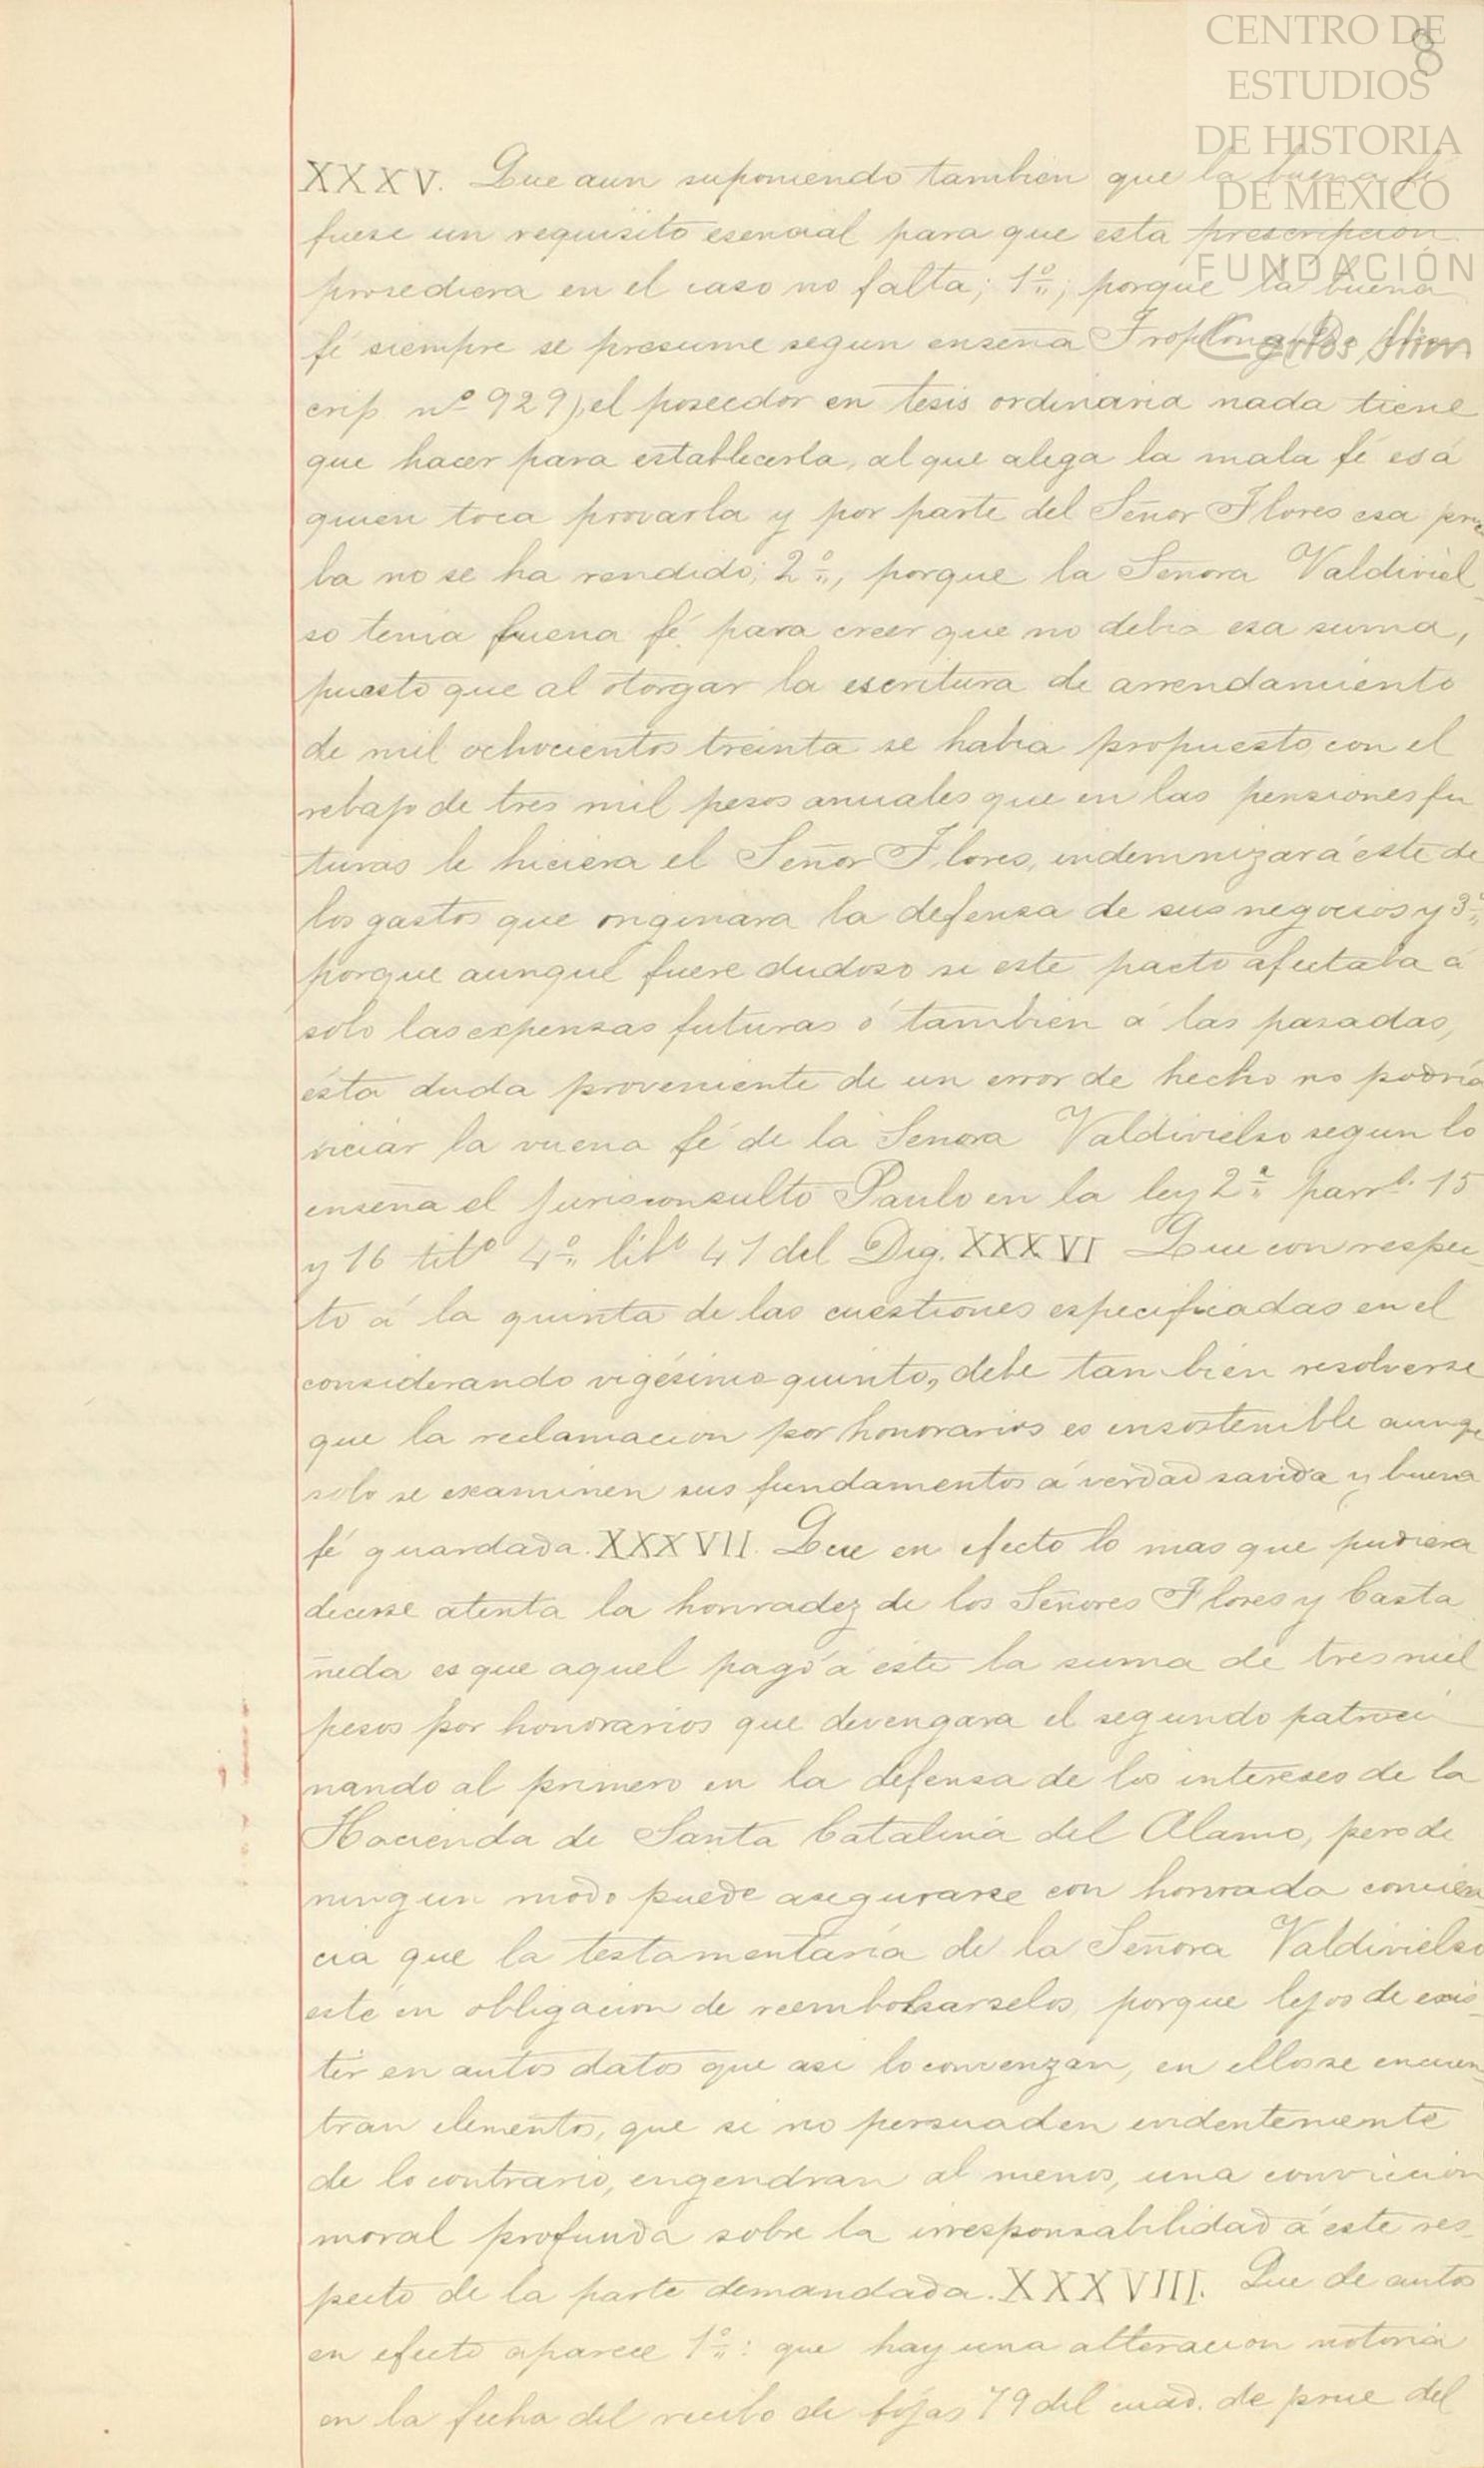 8
CENTRO DE
ESTUDIOS
DE HISTORIA
DE MÉXICO
FUNDACIÓN
Carlos Slim
XXXV. Que aun suponiendo tambien que la buena fé
fuese un requisito esencial para que esta prescripcion
prosediera en el caso no falta; 1º; porque la buena
fé siempre se presume segun enseña Troplong
crip nº 929), el poseedor en tesis ordinaria nada tiene
que hacer para establecerla, al que alega la mala fé es á
quien toca provarla y por parte del Señor Flores esa prue
ba no se ha rendido; 2º, porque la Señora Valdiviel
so tenia buena fé para creer que no debia esa suma,
puesto que al otorgar la escritura de arrendamiento
de mil ochocientos treinta se habia propuesto con el
rebajo de tres mil pesos anuales que en las pensiones fu
turas le hiciera el Señor Flores, indemnizar á este de
los gastos que originara la defensa de sus negocios y 3º
porque aunque fuere dudoso si este pacto afectaba á
solo las expensas futuras ó tambien á las pasadas,
ésta duda proveniente de un error de hecho no podria
viciar la vuena fé de la Señora Valdivielso segun lo
enseña el Jurisconsulto Paulo en la ley 2ª parrf. 15
y 16 titº 4º libº 41 del Dig. XXXVI Que con respec
to á la quinta de las cuestiones especificadas en el
considerando vigésimo quinto, debe tan bien resolverse
que la reclamacion por honorarios es insostenible aunqe
solo se examinen sus fundamentos á verdad savida y buena
fé guardada. XXXVII. Que en efecto lo mas que pudiera
decirse atenta la honradez de los Señores Flores y Casta
ñeda es que aquel pagó á este la suma de tres mil
pesos por honorarios que devengara el segundo patroci
nando al primero en la defensa de los intereses de la
Hacienda de Santa Catalina del Alamo, pero de
ningun modo puede asegurarse con honrada concien
cia que la testamentaria de la Señora Valdivielso
esté en obligacion de reembolsarselos, porque lejos de exis-
tir en autos datos que asi lo convenzan, en ellos se encuen-
tran elementos, que si no persuaden evidentemente
de lo contrario, engendran al menos, una conviccion
moral profunda sobre la irresponsabilidad á este res-
pecto de la parte demandada. XXXVIII. Que de autos
en efecto aparece 1º: que hay una alteracion notoria
en la fecha del recibo de fojas 79 del cuad. de prue del